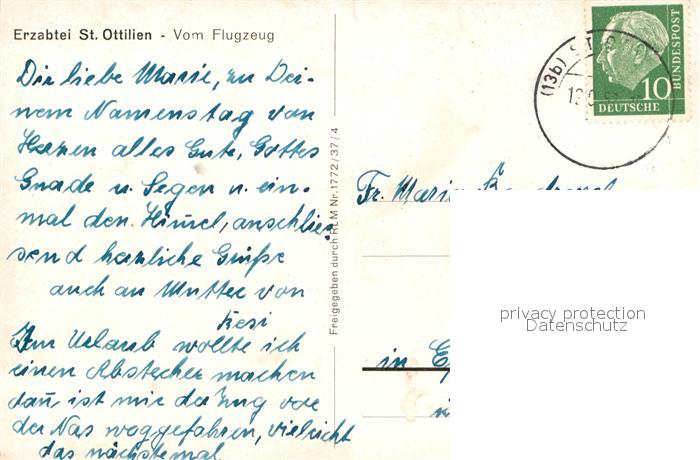 Erzabtei St. Ottilien - Vom Flugzeug
Dir liebe Marie, zu Dei-
nem Namenstag von
Herzen alles Gute, Gottes
Gnade u. Segen u. ein-
mal den Him̄el, anschlies
send herzliche Grüße
auch an Mutter von
Resi
Im Urlaub wollte ich
einen Abstecher machen
dan̄, ist mir der Zug vor
der Nas weggefahren, vielleicht
das nächstemal
Freigegeben durch RLM Nr. 1772/37/4
(13b) ST.
10
DEUTSCHE
BUNDESPOST
Fr. Maria
in
privacy protection
Datenschutz